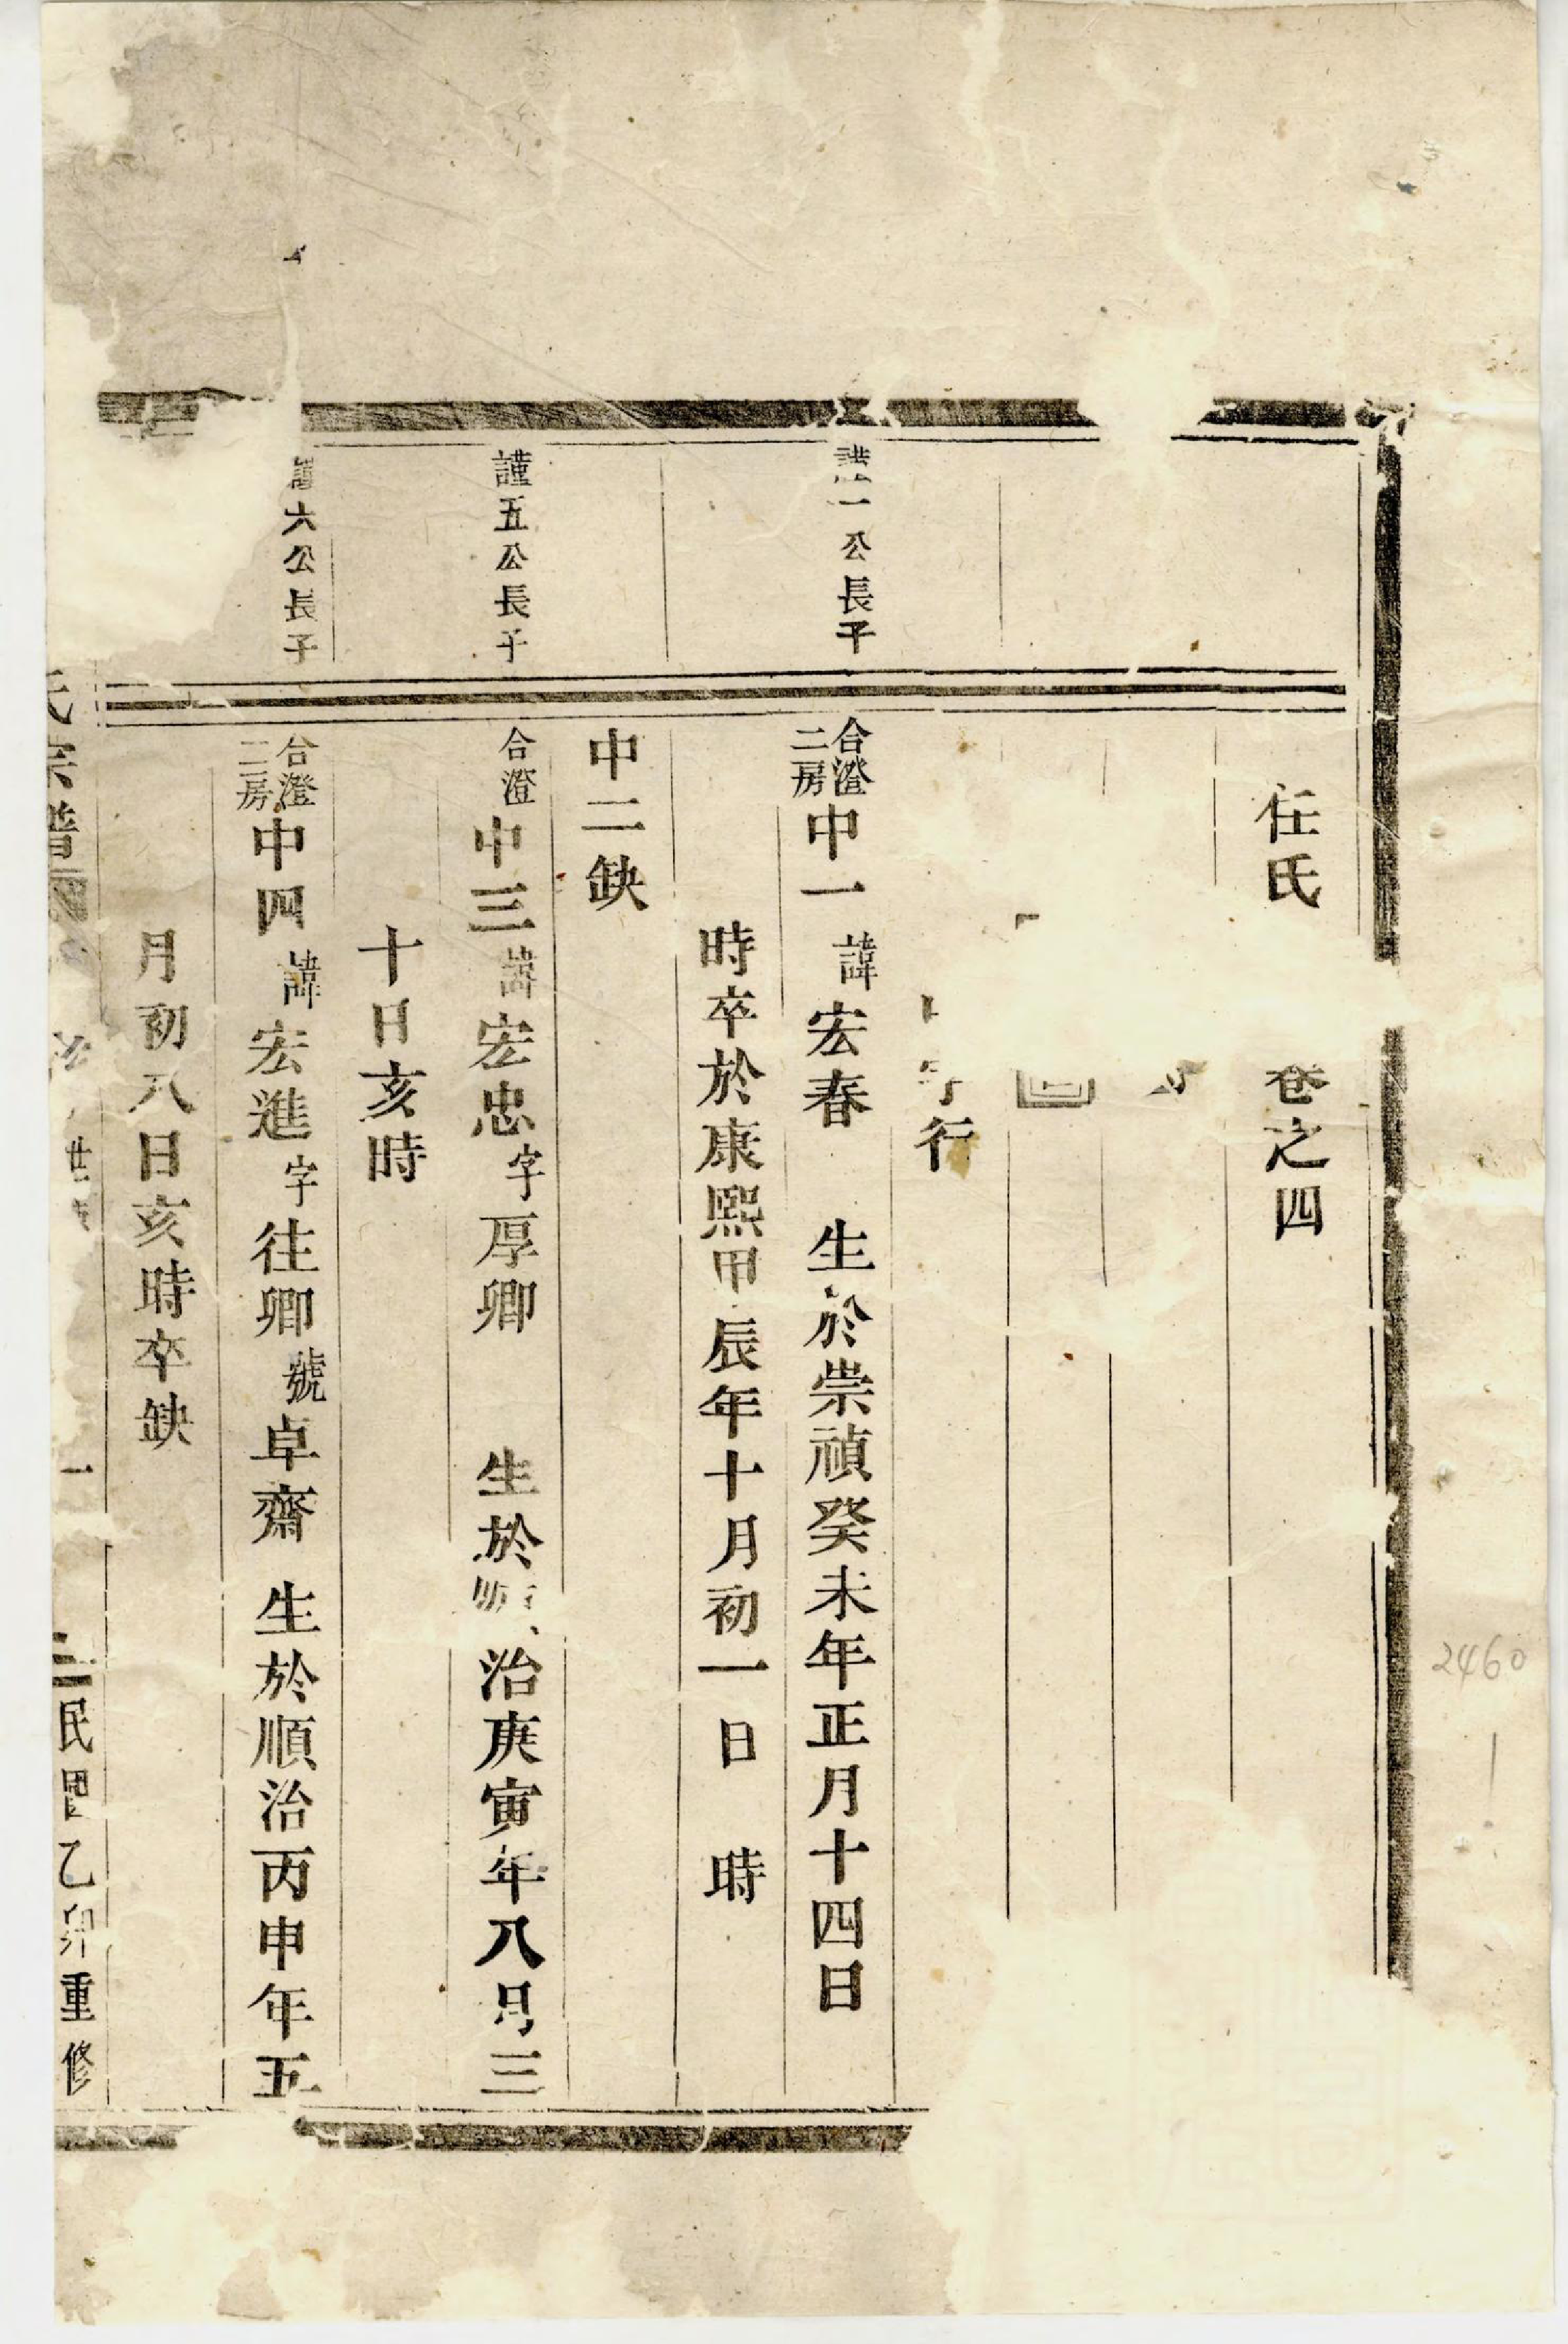 任氏 卷之四
行
謹一公長子
合澄二房中一諱宏春 生於崇禎癸未年正月十四日
時卒於康熙甲辰年十月初一日 時
中二缺
謹五公長子
合澄中三諱宏忠字厚卿 生於順治庚寅年八月三
十日亥時
謹六公長子
合澄二房中四諱宏進字往卿號卓齋 生於順治丙申年五
月初八日亥時卒缺
氏宗譜 世 一 民國乙卯重修
2460